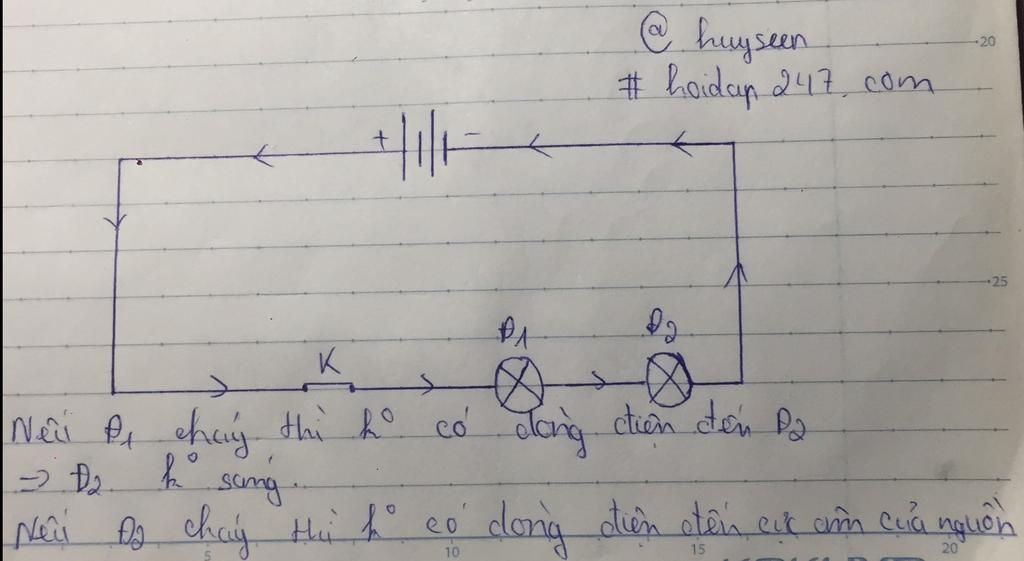 @ huyseen
# hoidap 247. com
20
+ -
25
Đ1 Đ2
K
Nếu Đ1 cháy thì kº có dòng điện đến Đ2
=> Đ2 kº sáng.
Nếu Đ2 cháy thì kº có dòng điện đến cực âm của nguồn
5 10 15 20